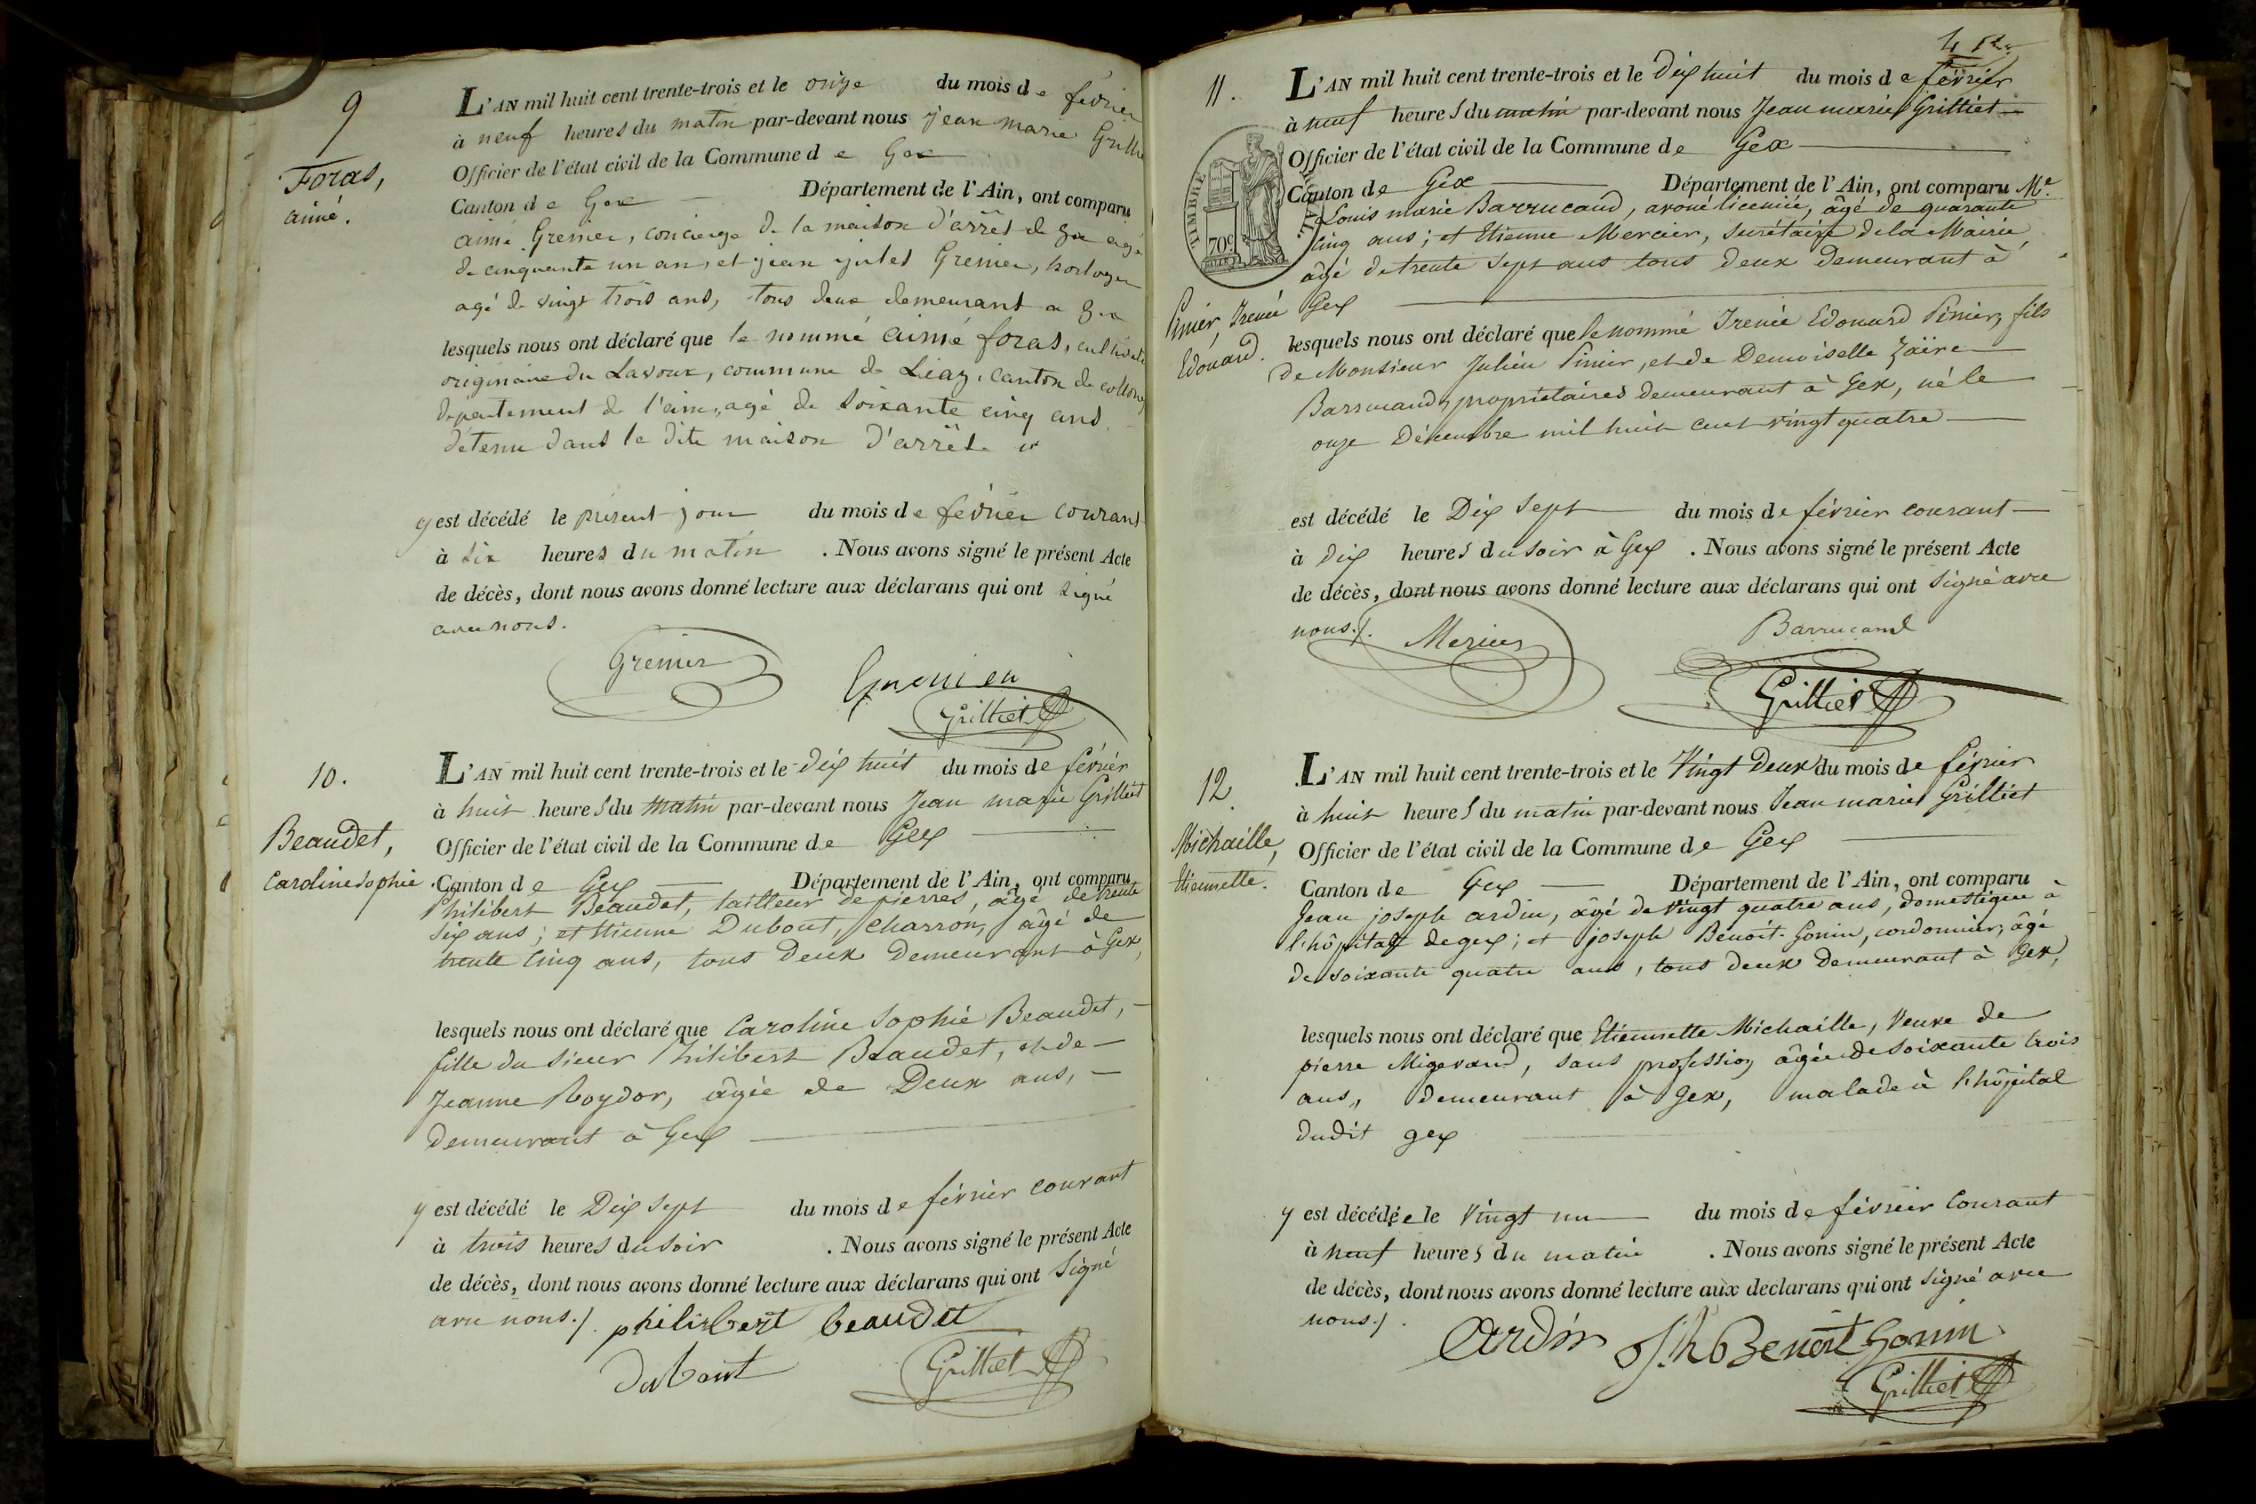 9
Foras,
aimé.
L'AN mil huit cent trente-trois et le onze du mois de fevrier
à neuf heures du matin par-devant nous jean marie Grilliet
Officier de l'état civil de la Commune de Gex
Canton de Gex Département de l'Ain, ont comparu
aimé Grenier, concierge de la maison d'arrêt de gex agé
de cinquante un an, et jean jules Grenier, horloger
agé de vingt trois ans, tous deux demeurant a gex
lesquels nous ont déclaré que le nommé aimé foras, cultivateur
originaire du Lavoux, commune de Léaz, canton de collonges
département de l'ain, agé de soixante cinq ans
détenu dans la dite maison d'arrêt
y est décédé le présent jour du mois de février courant
à six heures du matin . Nous avons signé le présent Acte
de décès, dont nous avons donné lecture aux déclarans qui ont signé
avec nous.
Grenier
Grenier
Grilliet
10.
Beaudet,
Caroline Sophie
L'AN mil huit cent trente-trois et le dix huit du mois de février
à huit heures du matin par-devant nous Jean marie Grilliet
Officier de l'état civil de la Commune de Gex
Canton de Gex Département de l'Ain, ont comparu
Philibert Beaudet, tailleur de pierres, âgé de trente
six ans; et Etienne Dubout, charron, âgé de
trente cinq ans, tous deux demeurant à Gex,
lesquels nous ont déclaré que Caroline Sophie Beaudet,
fille du sieur Philibert Beaudet, et de
Jeanne Roydor, âgée de Deux ans,
demeurant à Gex
y est décédé le Dix sept du mois de février courant
à trois heures du soir . Nous avons signé le présent Acte
de décès, dont nous avons donné lecture aux déclarans qui ont signé
avec nous./.
philibert beaudet
Dubout
Grilliet
11.
Pinier Irenée
Edouard.
TIMBRE
ROYAL
70c
L'AN mil huit cent trente-trois et le Dix huit du mois de février
à neuf heures du matin par-devant nous Jean marie Grilliet
Officier de l'état civil de la Commune de Gex
Canton de Gex Département de l'Ain, ont comparu Me
Louis marie Barrucand, avoué licencié, âgé de quarante
cinq ans; et Etienne Mercier, secrétaire de la Mairie
âgé de trente sept ans tous deux demeurant à
Gex
lesquels nous ont déclaré que le nommé Irenée Edouard Pinier, fils
de Monsieur Julien Pinier, et de Demoiselle Zaïre
Barrucand, propriétaires demeurant à Gex, né le
onze Décembre mil huit cent vingt quatre
est décédé le Dix sept du mois de février courant
à dix heures du soir à Gex . Nous avons signé le présent Acte
de décès, dont nous avons donné lecture aux déclarans qui ont signé avec
nous./.
Mercier
Barrucand
Grilliet
12.
Michaille,
Etiennette.
L'AN mil huit cent trente-trois et le Vingt Deux du mois de février
à huit heures du matin par-devant nous Jean marie Grilliet
Officier de l'état civil de la Commune de Gex
Canton de Gex Département de l'Ain, ont comparu
Jean joseph ardin, âgé de vingt quatre ans, domestique à
l'hôpital de gex; et joseph Benoît Gonin, cordonnier, âgé
de soixante quatre ans, tous deux demeurant à Gex,
lesquels nous ont déclaré que Etiennette Michaille, Veuve de
pierre Migevand, sans profession, âgée de soixante trois
ans, demeurant à Gex, malade à l'hôpital
dudit gex
y est décédée le Vingt un du mois de février courant
à neuf heures du matin . Nous avons signé le présent Acte
de décès, dont nous avons donné lecture aux declarans qui ont signé avec
nous./.
Ardin
Jh Benoit Gonin
Grilliet